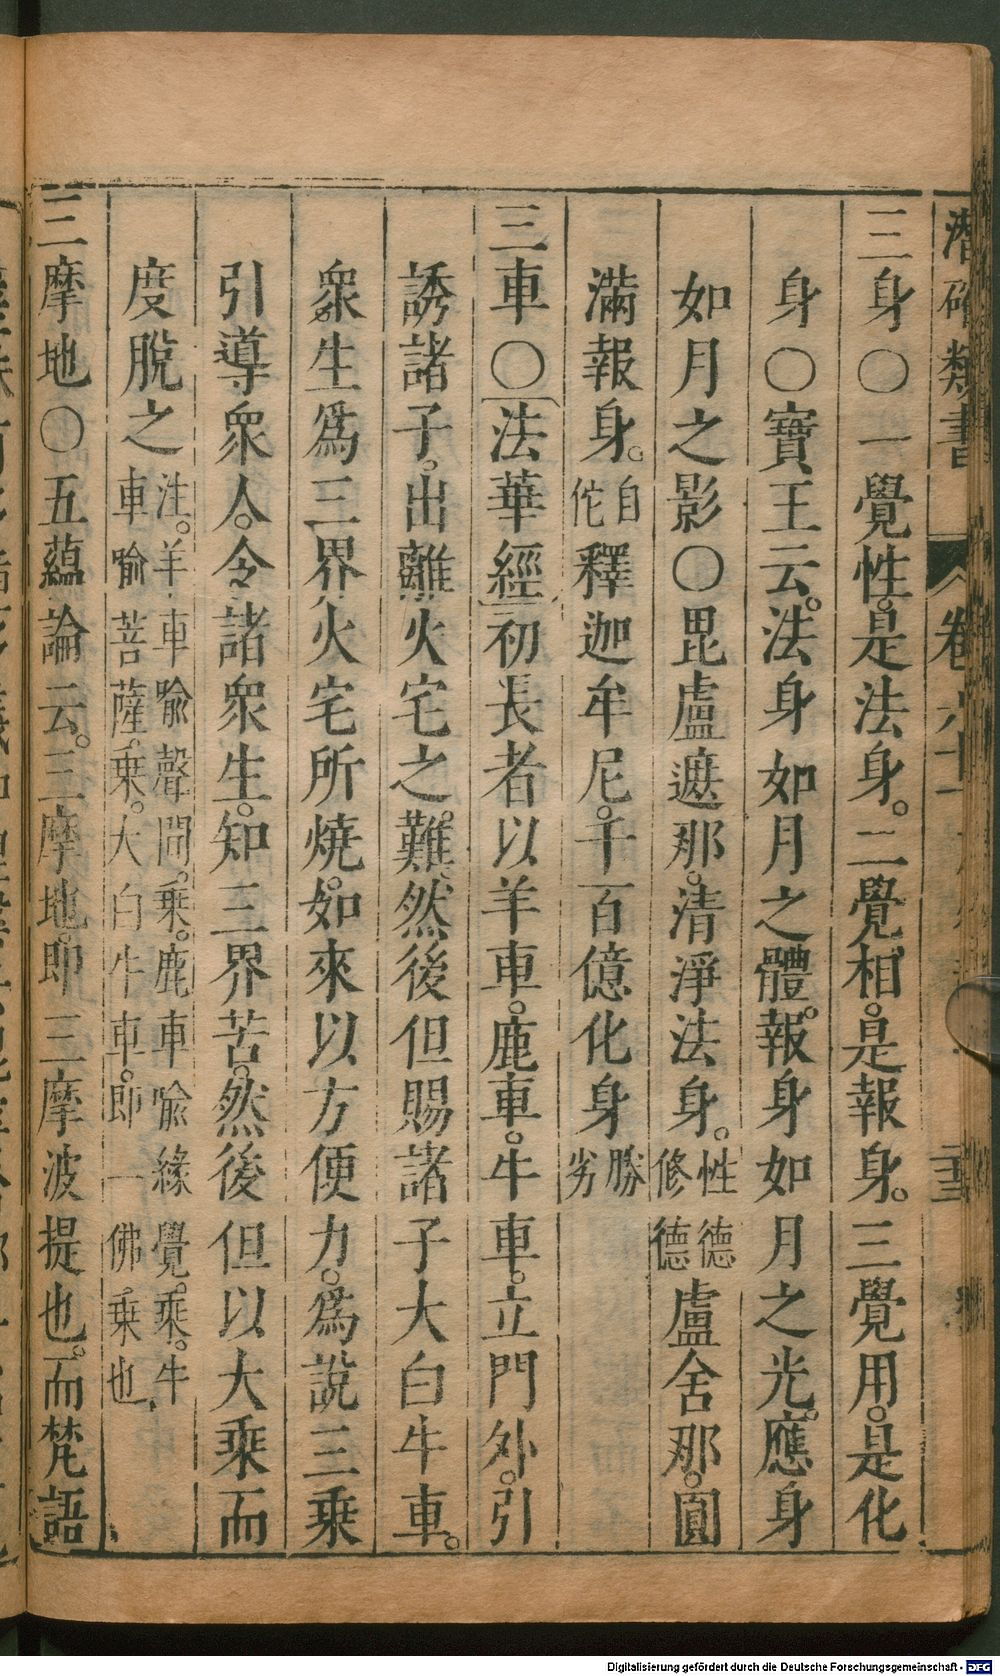 潛確類書 卷六十
三身〇一覺性。是法身。二覺相。是報身。三覺用。是化
身〇寶王云。法身如月之體。報身如月之光。應身
如月之影〇毘盧遮那。清淨法身。性德修德盧舍那。圓
滿報身。自佗釋迦牟尼。千百億化身勝劣
三車〇法華經初長者以羊車。鹿車。牛車。立門外。引
誘諸子。出離火宅之難。然後但賜諸子大白牛車。
衆生爲三界火宅所燒。如來以方便力。爲說三乘
引導衆人。令諸衆生。知三界苦。然後但以大乘而
度脫之注。羊車喻聲聞。乘。鹿車喻緣覺。乘。牛車喻菩薩。乘。大白牛車。即一佛乘也
三摩地〇五蘊論云。三摩地。即三摩波提也。而梵語
Digitalisierung gefördert durch die Deutsche Forschungsgemeinschaft - DFG